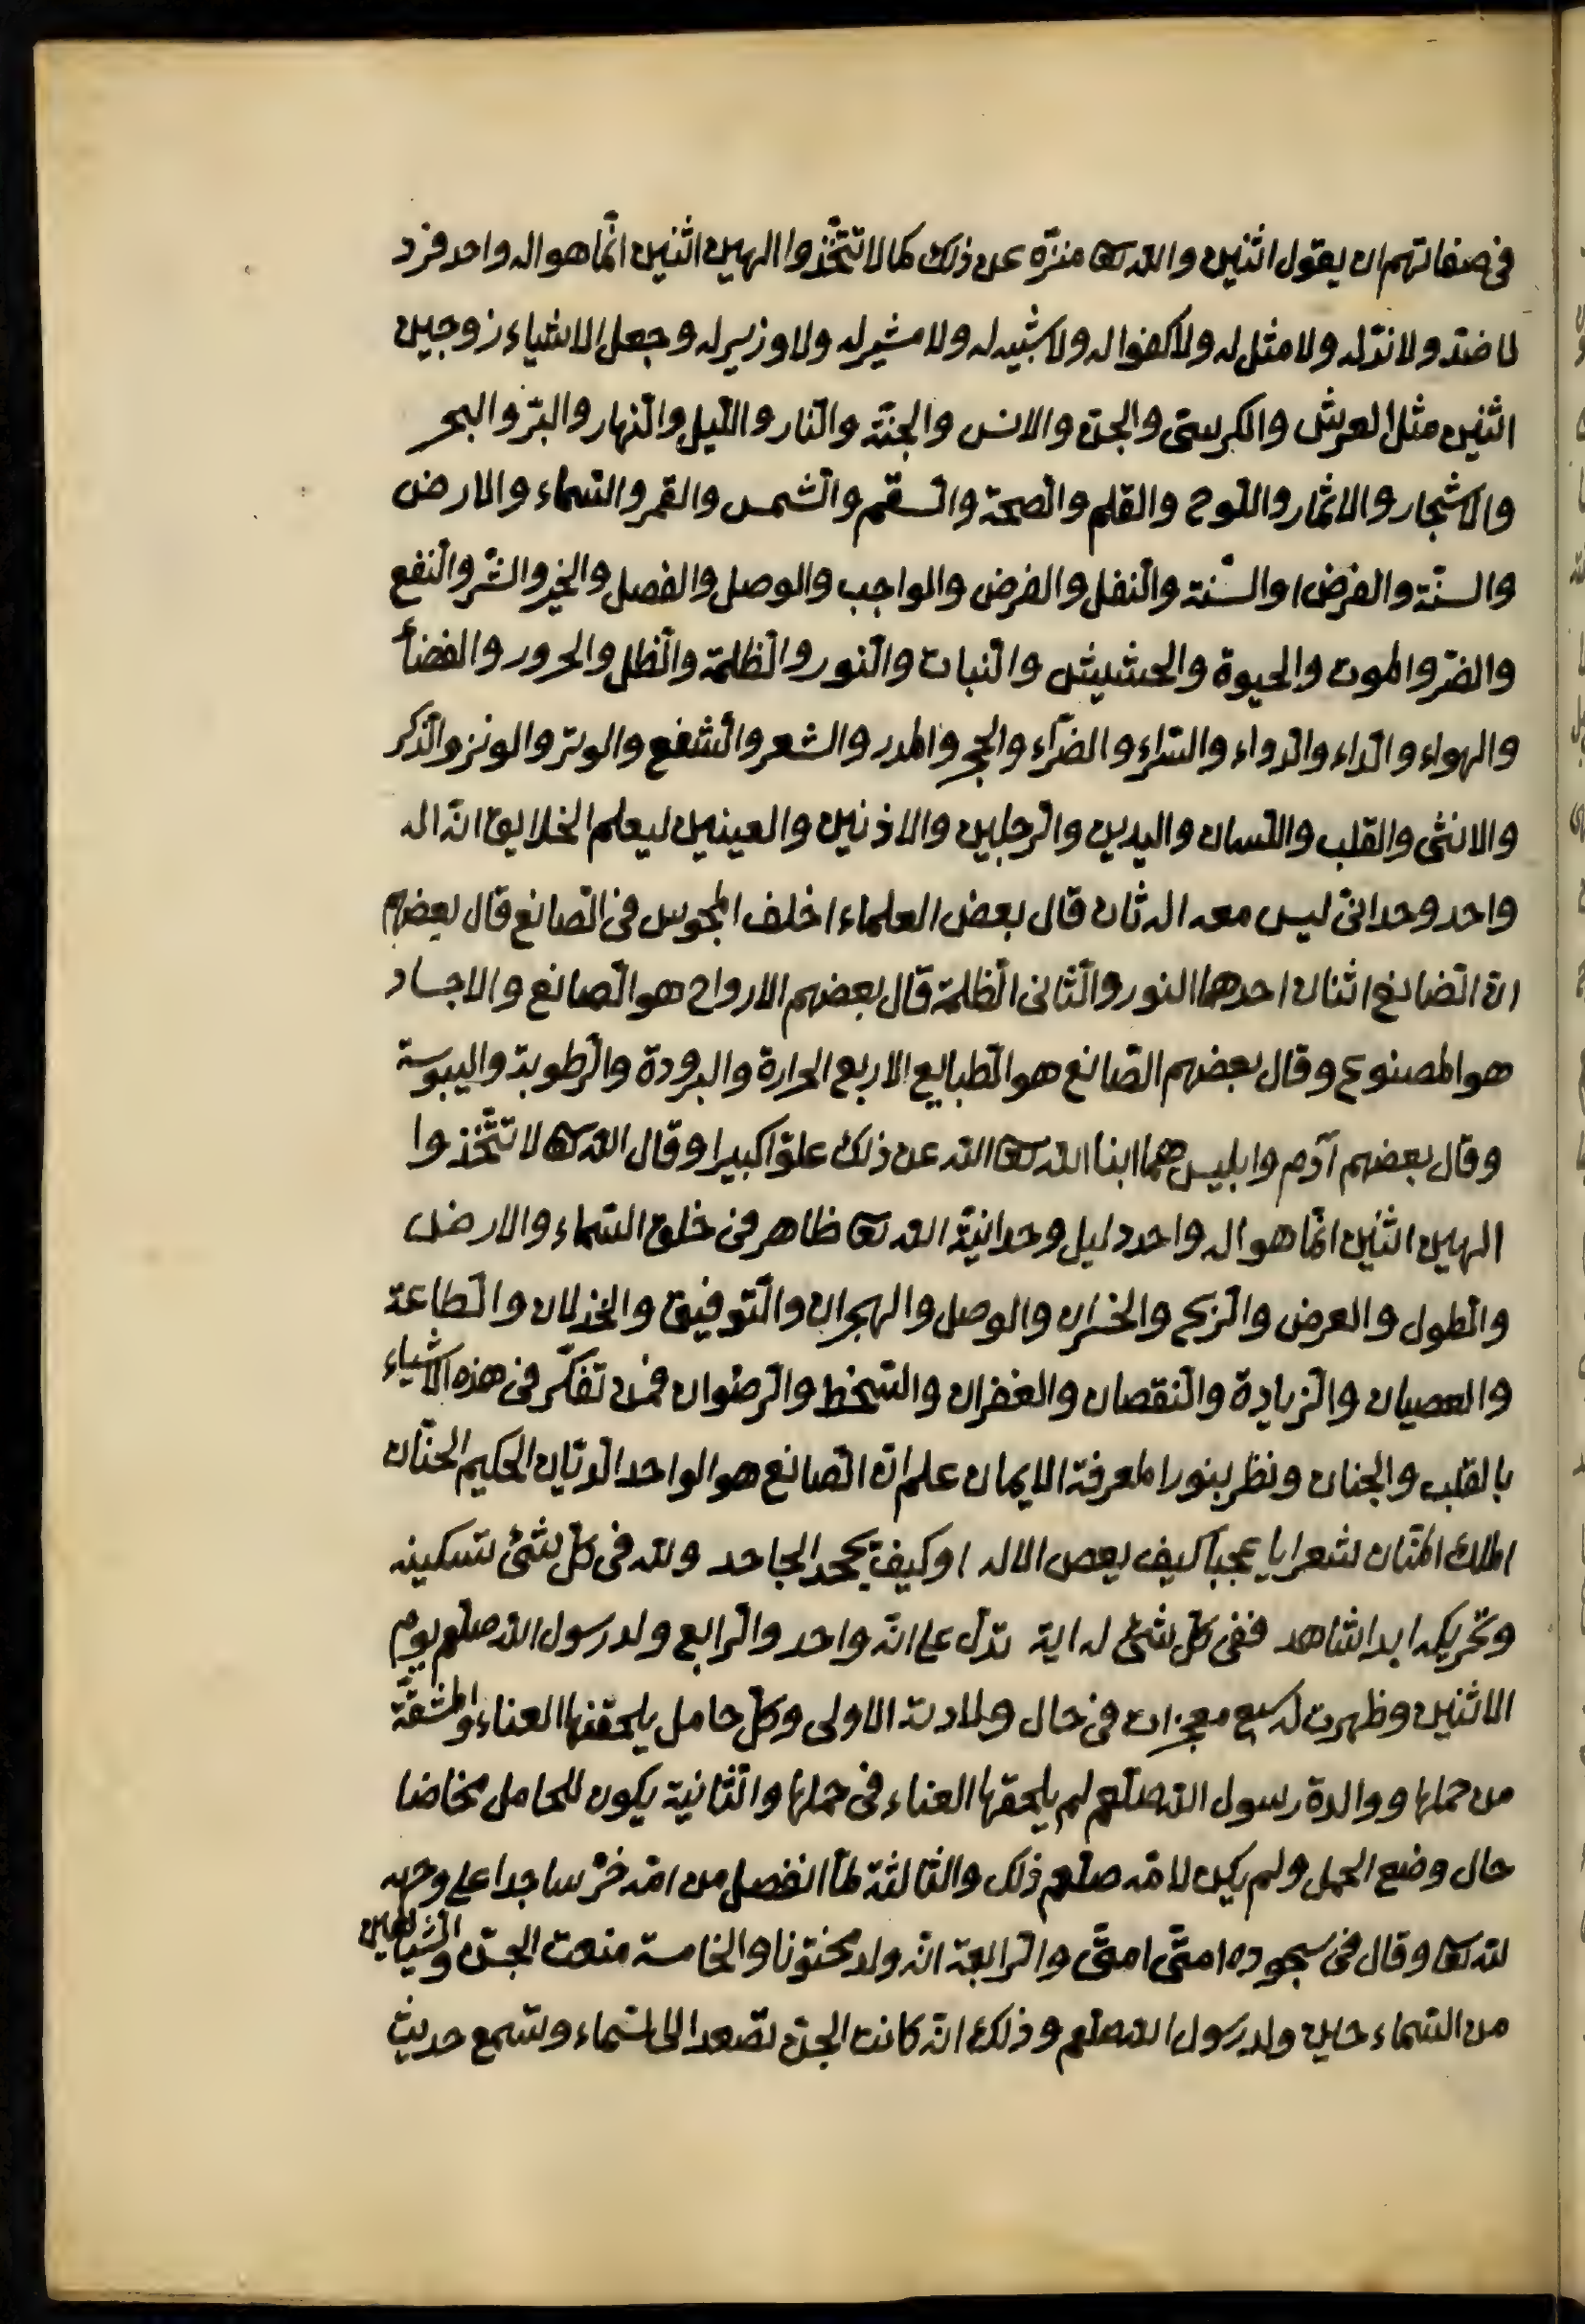 فى صفاتهم ان يقول اثنين والله تعا منزّه عن ذلك كما لا تتّخذوا الهين اثنين انّما هو اله واحد فرد
لا ضدّ ولا ندّ له ولا مثل له ولا كفوا له ولا شبيه له ولا مشير له ولا وزير له وجعل الاشياء زوجين
اثنين مثل العرش والكرسىّ والجنّ والانس والجنّة والنّار واللّيل والنّهار والبرّ والبحر
والاشجار والاثمار واللّوح والقلم والصّحة والسّقم والشّمس والقمر والسّماء والارض
والسنّة والفرض والسّنة والنّفل والفرض والواجب والوصل والفصل والخير والشّر والنّفع
والضرّ والموت والحيوة والحشيش والنّبات والنّور والظّلمة والظّل والحرور والفضأ
والهواء والدّاء والدّواء والسّراء والضرّاء والحجر والمدر والشعر والشّفع والوتر والونر والذّكر
والانثى والقلب واللّسان واليدين والرّجلين والاذنين والعينين ليعلم الخلايق انّه اله
واحد وحدانىّ ليس معه اله ثان قال بعض العلماء اختلف المجوس فى الصّانع قال بعضهم
انّ الصّانع اثنان احدهما النور والثّانى الظّلمة قال بعضهم الارواح هو الصّانع والاجساد
هو المصنوع وقال بعضهم الصّانع هو الطّبايع الاربع الحرارة والبرودة والرّطوبة واليبوسة
وقال بعضهم آدم وابليس هما ابنا الله تعا الله عن ذلك علوّا كبيرا وقال الله تعا لا تتّخذوا
الهين اثنين انّما هو اله واحد دليل وحدانيّة الله تعا ظاهر فى خلق السّماء والارض
والطّول والعرض والرّبح والخسران والوصل والهجران والتّوفيق والخذلان والطّاعة
والعصيان والزّيادة والنّقصان والغفران والسّخط والرّضوان فمن تفكّر فى هذه الاشياء
بالقلب والجنان ونظر بنور المعرفة الايمان علم انّ الصّانع هو الواحد الدّيّان الحكيم الحنّان
الملك المنّان شعر ايا عجبا كيف يعص الاله او كيف يجحد الجاحد ولله فى كلّ شئ تسكينه
وتحريكه ابدا شاهد ففى كلّ شئ له اية تدلّ على انّه واحد والرّابع ولد رسول الله صلعم يوم
الاثنين وظهرت له سبع معجزات فى حال ولادته الاولى وكلّ حامل يلحقها العناء والمشقّة
من حملها ووالدة رسول الله صلعم لم يلحقها العناء فى حملها والثّانية يكون للحامل مخاضا
حال وضع الحمل ولم يكن لامّه صلعم ذلك والثالثة لمّا انفصل من امّه خرّ ساجدا على وجهه
لله تعا وقال فى سجوده امتّى امتّى والرّابعة انّه ولد مختونا والخامسة منعت الجنّ والشّياطين
من السّماء حين ولد رسول الله صلعم وذلك انّه كانت الجنّ تصعد الى السّماء وتسمع حديث